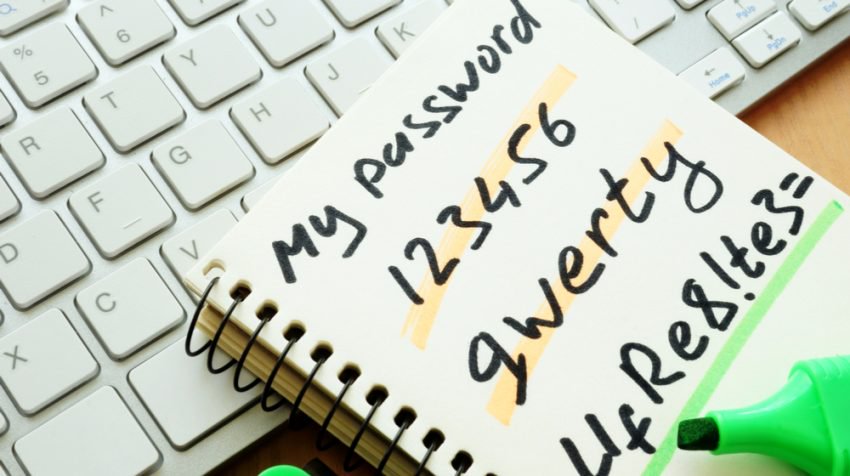 % 5 ^ 6
R T Y U
D F G H J K
X C V
PgUp End
Home PgDn
My password
123456
qwerty
4fRe8!te3=